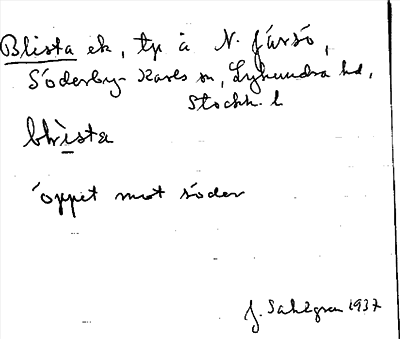 Blista ek, tp å N. Järsö,
Söderby-Karls sn, Lyhundra hd,
Stockh. l
blìsta
öppet mot söder
J. Sahlgren 1937